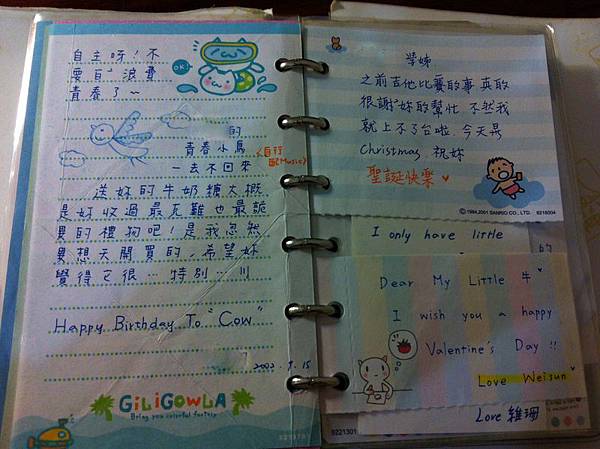 自主呀!不
要白浪費
青春了~
OK!
的
青春小鳥
一去不回來
(自行配Music)
送妳的牛奶糖大概
是妳收過最克難也最詭
異的禮物吧!是我忽然
異想天開買的,希望妳
覺得它很…特別…!!!
Happy Birthday To "Cow"
2002. 9. 15
GiLiGOWLA
Bring you colorful factory
學姊
之前吉他比賽的事真的
很謝妳的幫忙 不然我
就上不了台啦.今天是
Christmas 祝妳
聖誕快樂
© 1984,2001 SANRIO CO., LTD.
I only have little
的
Dear My Little 牛
I wish you a happy
Valentine's Day !!
Love Weisun
Love 維珊
8221301